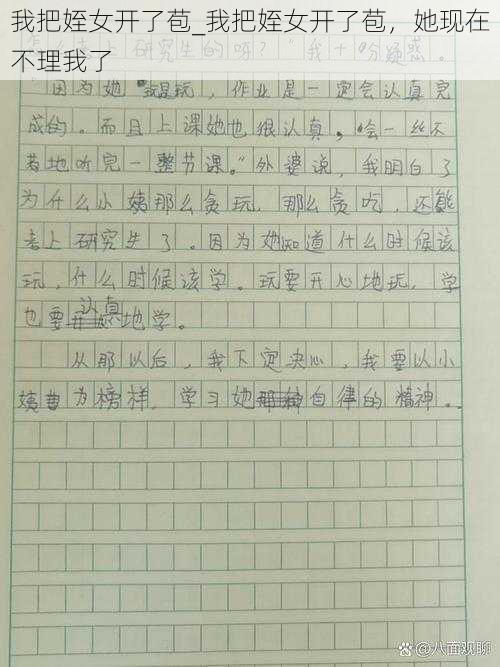 我把姪女开了苞_我把姪女开了苞，她现在
不理我了
研究生的呀？"我十分疑惑。
"因为她玩是玩，作业是一定会认真完
成的。而且上课她也很认真，会一丝不
苟地听完一整节课。"外婆说，我明白了
为什么小姨那么贪玩，那么贪吃，还能
考上研究生了。因为她知道什么时候该
玩，什么时候该学。玩要开心地玩，学
也要认真地学。
从那以后，我下定决心，我要以小
姨为榜样，学习她自律的精神。
@八面观聊